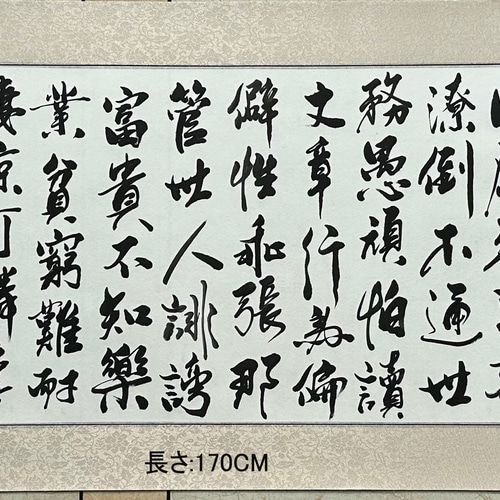 潦倒不通世
務愚頑怕讀
文章行為偏
僻性乖張那
管世人誹謗
富貴不知樂
業貧窮難耐
長さ:170CM